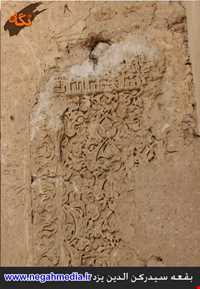 نگاه
بقعه سیدرکن الدین یزد
www.negahmedia.ir